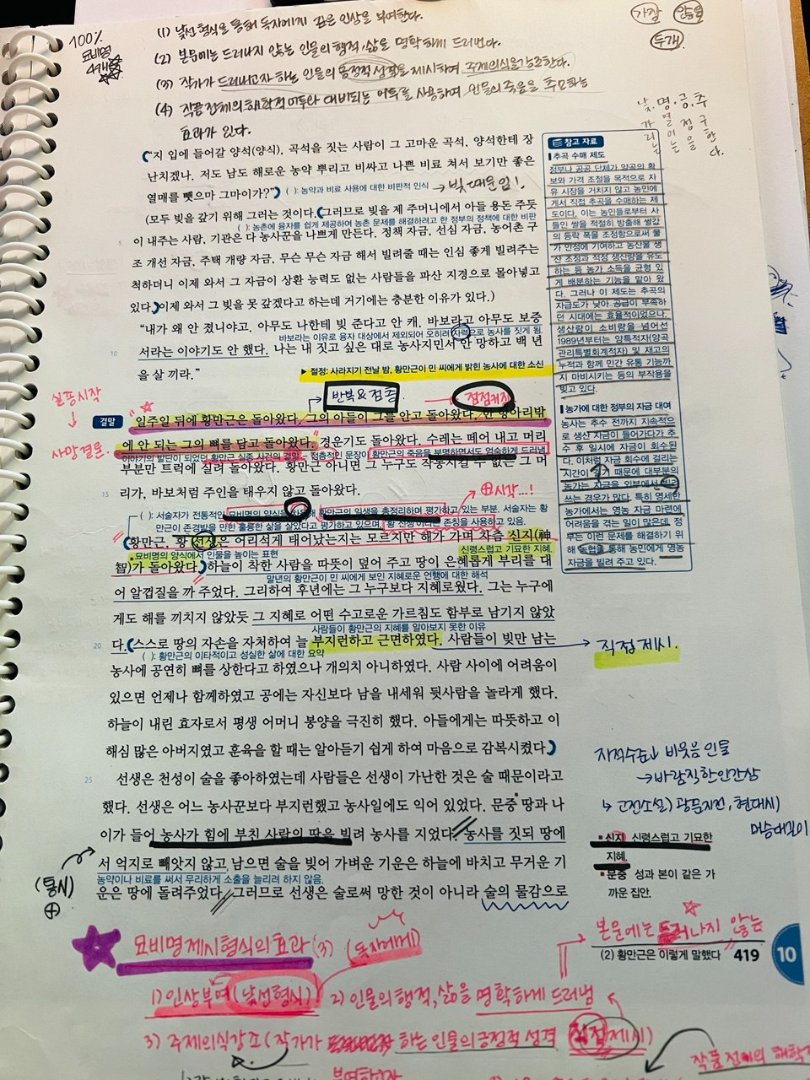 100%
묘비명
(1) 낯선 형식을 통해 독자에게 깊은 인상을 부여한다.
(2) 본문에는 드러나지 않는 인물의 행적·삶을 명확하게 드러낸다.
(3) 작가가 드러내고자 하는 인물의 긍정적 성격을 제시하여 주제의식을 강조한다.
(4) 작품 전체의 해학적 어두와 대비되는 어투를 사용하여 인물의 죽음을 추모하는
효과가 있다.
두개
"지 입에 들어갈 양석(양식), 곡석을 짓는 사람이 그 고마운 곡석, 양석한테 장
난치겠나. 저도 남도 해로운 농약 뿌리고 비싸고 나쁜 비료 쳐서 보기만 좋은
열매를 뺏으마 그마이가?"
( ): 농약과 비료 사용에 대한 비판적 인식
(모두 빚을 갚기 위해 그러는 것이다. 그러므로 빚을 제 주머니에서 아들 용돈 주듯
( ): 농촌에 융자를 쉽게 제공하여 농촌 문제를 해결하려고 한 정부의 정책에 대한 비판
5 이 내주는 사람, 기관은 다 농사꾼을 나쁘게 만든다. 정책 자금, 선심 자금, 농어촌 구
조 개선 자금, 주택 개량 자금, 무슨 무슨 자금 해서 빌려줄 때는 인심 좋게 빌려주는
척하더니 이제 와서 그 자금이 상환 능력도 없는 사람들을 파산 지경으로 몰아넣고
있다. 이제 와서 그 빚을 못 갚겠다고 하는데 거기에는 충분한 이유가 있다.)
"내가 왜 안 졌니야고. 아무도 나한테 빚 준다고 안 캐. 바보라고 아무도 보증
바보라는 이유로 융자 대상에서 제외되어 오히려 자력으로 농사를 짓게 됨.
10 서라는 이야기도 안 했다. 나는 내 짓고 싶은 대로 농사지민서 안 망하고 백 년
을 살 끼라."
▶ 절정: 사라지기 전날 밤, 황만근이 민 씨에게 밝힌 농사에 대한 소신
반복&점층
점점커지
실종시작
사망결론
결말 일주일 뒤에 황만근은 돌아왔다. 그의 아들이 그를 안고 돌아왔다. 한 항아리밖
에 안 되는 그의 뼈를 담고 돌아왔다. 경운기도 돌아왔다. 수레는 떼어 내고 머리
이야기의 발단이 되었던 황만근 실종 사건의 결말 – 점층적인 문장이 황만근의 죽음을 분명하면서도 엄숙하게 드러냄
부분만 트럭에 실려 돌아왔다. 황만근 아니면 그 누구도 작동시킬 수 없는 그 머
15 리가, 바보처럼 주인을 태우지 않고 돌아왔다.
( ): 서술자가 전통적인 묘비명의 양식을 활용해 황만근의 일생을 총정리하며 평가하고 있는 부분. 서술자는 황
만근이 존경받을 만한 훌륭한 삶을 살았다고 평가하고 있으며, '황 선생'이라는 존칭을 사용하고 있음.
황만근, 황 선생은 어리석게 태어났는지는 모르지만 해가 가며 차츰 신지(神
묘비명의 양식에서 인물을 높이는 표현
신령스럽고 기묘한 지혜
智)가 돌아왔다. 하늘이 착한 사람을 따뜻이 덮어 주고 땅이 은혜롭게 부리를 대
말년의 황만근이 민 씨에게 보인 지혜로운 언행에 대한 해석
어 알껍질을 까 주었다. 그리하여 후년에는 그 누구보다 지혜로웠다. 그는 누구에
게도 해를 끼치지 않았듯 그 지혜로 어떤 수고로운 가르침도 함부로 남기지 않았
사람들이 황만근의 지혜를 알아보지 못한 이유
20 다. 스스로 땅의 자손을 자처하여 늘 부지런하고 근면하였다. 사람들이 빚만 남는
( ): 황만근의 이타적이고 성실한 삶에 대한 요약
직접 제시.
농사에 공연히 뼈를 상한다고 하였으나 개의치 아니하였다. 사람 사이에 어려움이
있으면 언제나 함께하였고 공에는 자신보다 남을 내세워 뒷사람을 놀라게 했다.
하늘이 내린 효자로서 평생 어머니 봉양을 극진히 했다. 아들에게는 따뜻하고 이
해심 많은 아버지였고 훈육을 할 때는 알아듣기 쉽게 하여 마음으로 감복시켰다.
25 선생은 천성이 술을 좋아하였는데 사람들은 선생이 가난한 것은 술 때문이라고
했다. 선생은 어느 농사꾼보다 부지런했고 농사일에도 익어 있었다. 문중 땅과 나
이가 들어 농사가 힘에 부친 사람의 땅을 빌려 농사를 지었다. 농사를 짓되 땅에
서 억지로 빼앗지 않고 남으면 술을 빚어 가벼운 기운은 하늘에 바치고 무거운 기
농약이나 비료를 써서 무리하게 소출을 늘리려 하지 않음.
운은 땅에 돌려주었다. 그러므로 선생은 술로써 망한 것이 아니라 술의 물감으로
참고 자료
추곡 수매 제도
정부나 공공 단체가 양곡의 확
보와 가격 조절을 목적으로 자
유 시장을 거치지 않고 농민에
게서 직접 추곡을 수매하는 제
도이다. 이는 농민들로부터 사
들인 쌀을 적절히 방출해 쌀값
의 등락 폭을 조정함으로써 물
가 안정에 기여하고 농산물 생
산 조정과 적정 생산량을 유도
하는 등 농가 소득을 균형 있
게 배분하는 기능을 맡아 왔
다. 그러나 이 제도는 추곡의
자급도가 낮아 공급이 부족하
던 시대에는 효율적이었으나,
생산량이 소비량을 넘어선
1989년부터는 양특적자(양곡
관리특별회계적자) 및 재고의
누적과 함께 민간 유통 기능까
지 마비시키는 등의 부작용을
빚고 있다.
농가에 대한 정부의 자금 대여
농사는 추수 전까지 지속적으
로 생산 자금이 들어가다가 추
수 후 일시에 자금이 회수된
다. 이처럼 자금 회수에 걸리는
시간이 길기 때문에 대부분의
농가는 자금을 외부에서 빌려
쓰는 경우가 많다. 특히 영세한
농가에서는 영농 자금 마련에
어려움을 겪는 일이 많은데, 정
부는 이런 문제를 해결하기 위
해 농협을 통해 농민에게 영농
자금을 빌려 주고 있다.
자적수준↓ 비웃음 인물
→바람직한인간상
↳고전소설) 광문자전, 현대시)
머슴대길이
신지 신령스럽고 기묘한
지혜.
문중 성과 본이 같은 가
까운 집안.
(동시)
묘비명제시형식의 효과 (3) (독자에게)
본문에는 드러나지 않는
(2) 황만근은 이렇게 말했다 419 10
1) 인상부여(낯선형식) 2) 인물의 행적, 삶을 명확하게 드러냄
3) 주제의식강조(작가가 하는 인물의 긍정적 성격 직접제시)
작품 전체의 해학적